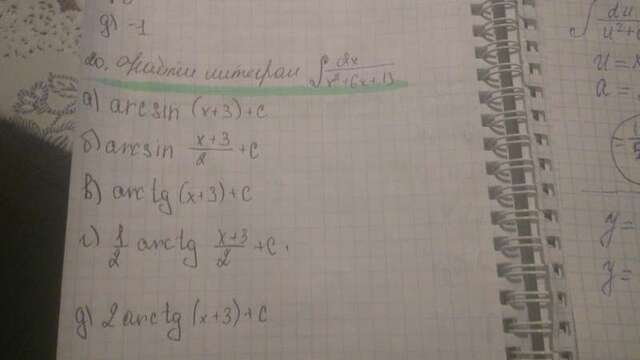 д) -1
20. Найти интеграл ∫ dx / x²+6x+13
а) arcsin (x+3)+c
б) arcsin x+3/2 +c
в) arctg (x+3)+c
г) 1/2 arctg x+3/2 +c.
д) 2 arctg (x+3)+c
∫ du
u =
a =
y =
y =